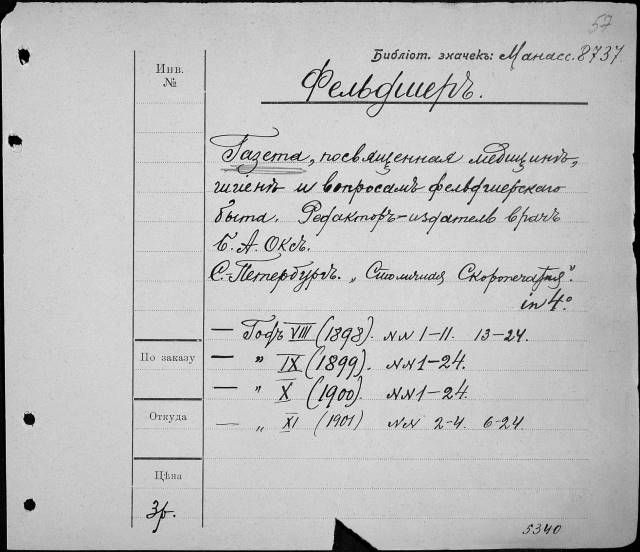 57
Библіот. значекъ: Манасс. 8737.
Инв. №
Фельдшеръ.
Газета, посвященная медицинѣ,
гигіенѣ и вопросамъ фельдшерскаго
быта. Редакторъ-издатель врачъ
Б. А. Оксъ.
С.-Петербургъ. „Столичная Скоропечатня".
in 4°.
— Годъ VIII (1898). NN 1-11. 13-24.
По заказу — „ IX (1899). NN 1-24.
— „ X (1900). NN 1-24.
Откуда — „ XI (1901) NN 2-4. 6-24.
Цѣна
3р.
5340